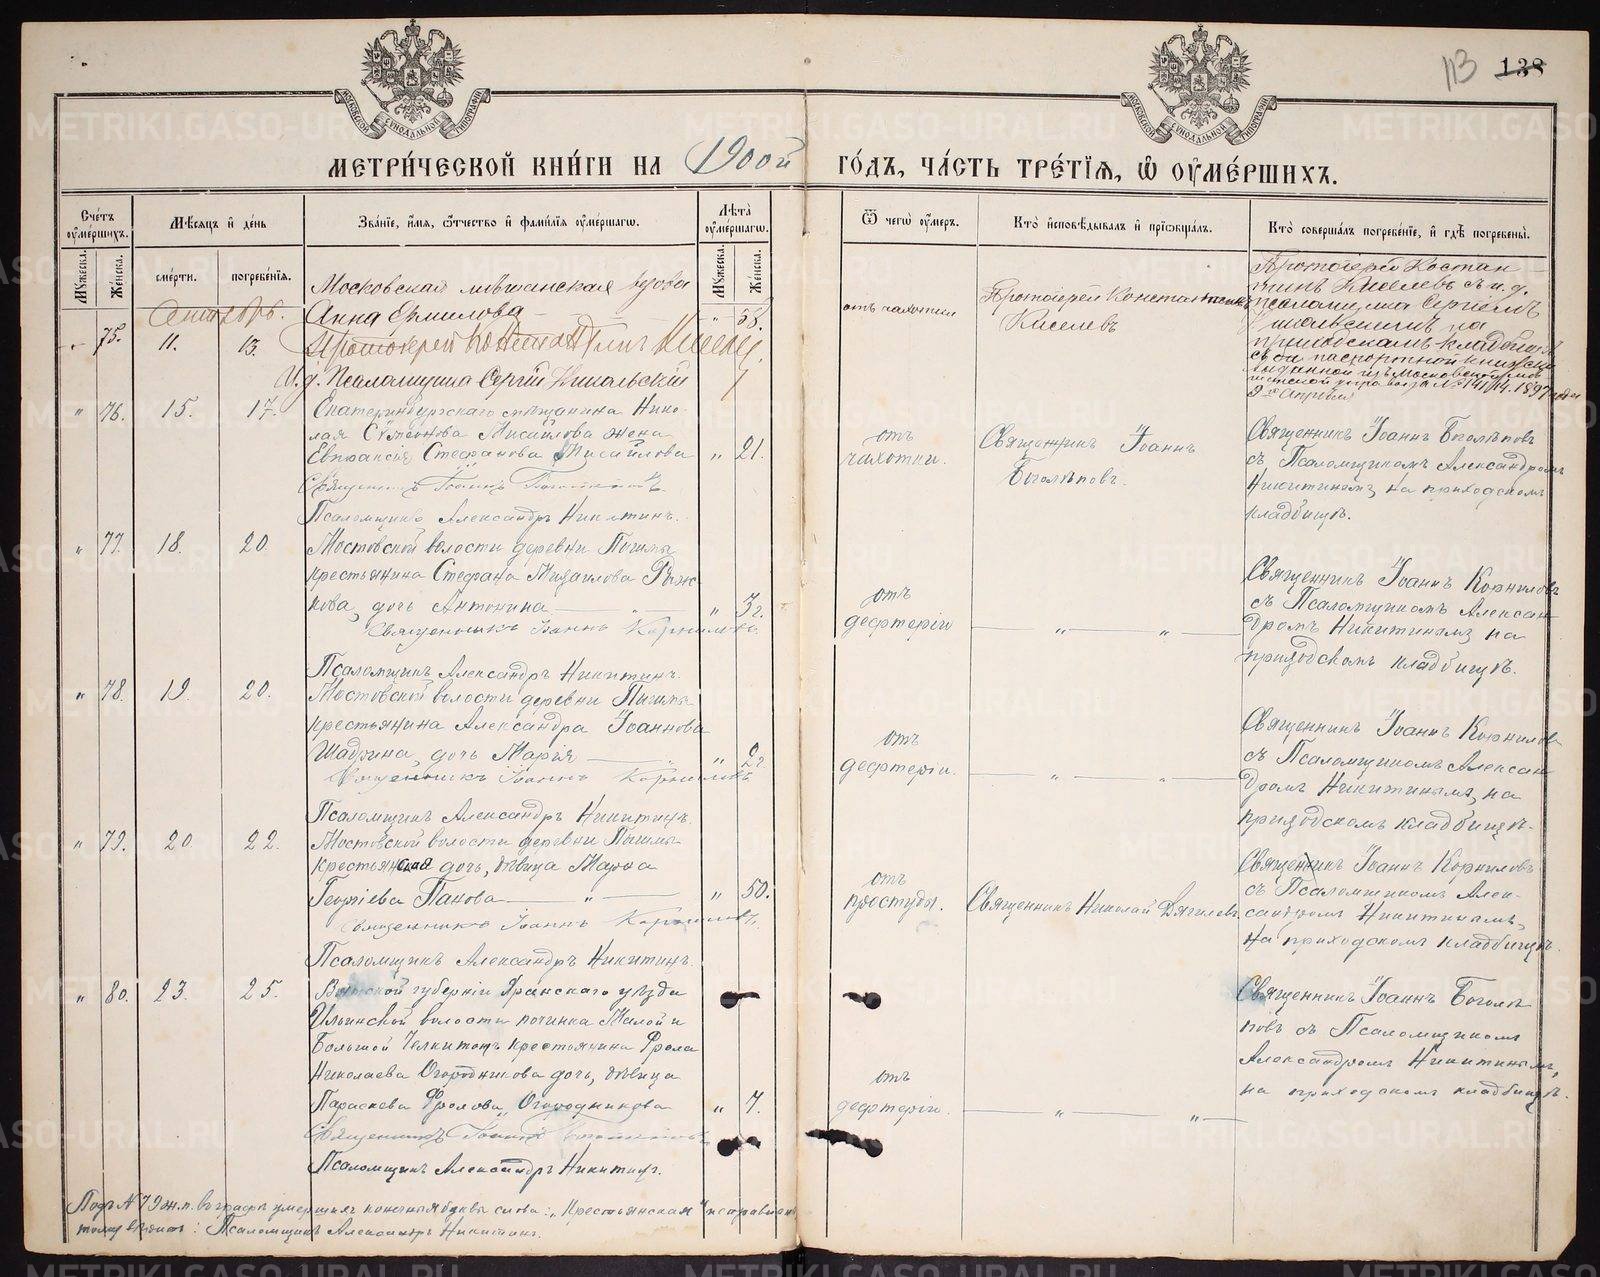 113 138
МОСКОВСКОЙ СУНОДАЛЬНОЙ ТИПОГРАФІИ
МОСКОВСКОЙ СУНОДАЛЬНОЙ ТИПОГРАФІИ
МЕТРИ́ЧЕСКОЙ КНИ́ГИ НА 1900й ГО́ДЪ, ЧА́СТЬ ТРЕ́ТІѦ, Ѿ ОУМЕ́РШИХЪ.
Сче́тъ оуме́ршихъ.
Мѣ́сѧцъ и҆ де́нь
Зва́ніе, и҆́мѧ, ѻ҆́тчество и҆ фами́лїѧ оуме́ршагѡ.
Лѣ́та оуме́ршагѡ.
Ѿ чегѡ̀ оу҆́меръ.
Кто̀ и҆сповѣ́дывалъ и҆ прїѡбща́лъ.
Кто̀ соверша́лъ погребе́нїе, и҆ гдѣ̀ погребены̀.
Му́жеска. Же́нска.
сме́рти. погребе́нїѧ.
Му́жеска. Же́нска.
Сентябрь.
75. 11. 13.
Московская мѣщанская вдова
Анна Ермилова
58.
Протоіерей Константинъ Киселевъ
И. д. Псаломщика Сергій Никольскій
отъ чахотки
Протоіерей Константинъ
Киселевъ
Протоіерей Констан-
тинъ Киселевъ съ и. д.
псаломщика Сергіемъ
Никольскимъ на
приходскомъ кладбищѣ
" 76. 15. 17.
Екатеринбургскаго мѣщанина Нико-
лая Сѵмеонова Мисаилова жена
Евпраксія Стефанова Мисаилова " 21.
Священникъ Іоаннъ Боголѣповъ.
Псаломщикъ Александръ Никитинъ.
отъ
чахотки.
Священникъ Іоаннъ
Боголѣповъ.
Священникъ Іоаннъ Боголѣповъ
съ Псаломщикомъ Александромъ
Никитинымъ, на приходскомъ
кладбищѣ.
" 77. 18. 20.
Мостовской волости деревни Пышмы
крестьянина Стефана Михаилова Рыж-
кова, дочь Антонина " " 3г.
Священникъ Іоаннъ Корниловъ.
Псаломщикъ Александръ Никитинъ.
отъ
дефтеріи
" "
Священникъ Іоаннъ Корниловъ
съ Псаломщикомъ Алексан-
дромъ Никитинымъ на
приходскомъ кладбищѣ.
" 78. 19. 20.
Мостовской волости деревни Пышмы
крестьянина Александра Іоаннова
Шадрина, дочь Марія " " 2г
Священникъ Іоаннъ Корниловъ
Псаломщикъ Александръ Никитинъ.
отъ
дефтеріи.
" "
Священникъ Іоаннъ Корниловъ
съ Псаломщикомъ Алексан-
дромъ Никитинымъ, на
приходскомъ кладбищѣ.
" 79. 20. 22.
Мостовской волости деревни Пышмы
крестьянская дочь, дѣвица Марѳа
Георгіева Панова " " 50.
Священникъ Іоаннъ Корниловъ.
Псаломщикъ Александръ Никитинъ.
отъ
простуды.
Священникъ Николай Дягилевъ.
Священникъ Іоаннъ Корниловъ
съ Псаломщикомъ Алек-
сандромъ Никитинымъ,
на приходскомъ кладбищѣ.
" 80. 23. 25.
Вятской губерніи Яранскаго уѣзда
Ильинской волости починка Малой и
Большой крестьянина Фрола
Николаева Огородникова дочь, дѣвица
Параскева Фролова Огородникова " 7.
Священникъ Іоаннъ Боголѣповъ
Псаломщикъ Александръ Никитинъ.
отъ
дефтеріи.
" "
Священникъ Іоаннъ Боголѣ-
повъ съ Псаломщикомъ
Александромъ Никитинымъ,
на приходскомъ кладбищѣ.
Подъ № 79 ж. п. въ графѣ умершихъ конечныя буквы слова: "Крестьянская" исправлен
Псаломщикъ Александръ Никитинъ.
METRIKI.GASO-URAL.RU